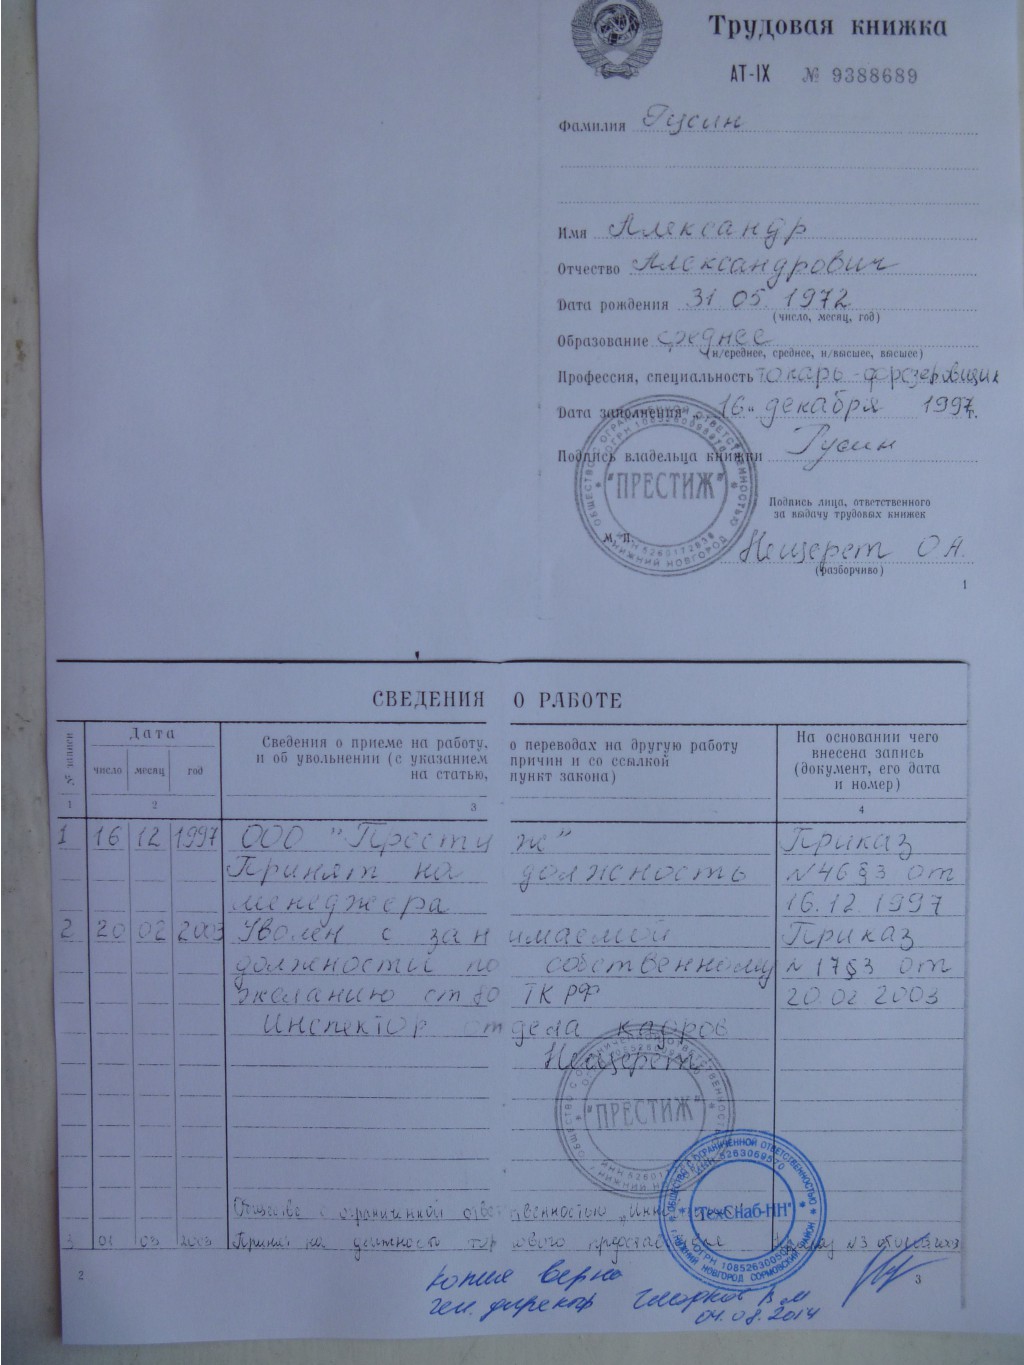 Трудовая книжка
АТ-IX № 9388689
Фамилия Гусин
Имя Александр
Отчество Александрович
Дата рождения 31.05.1972
(число, месяц, год)
Образование среднее
(н/среднее, среднее, н/высшее, высшее)
Профессия, специальность токарь-фрезеровщик
Дата заполнения „16“ декабря 1997г.
Подпись владельца книжки Гусин
"ПРЕСТИЖ"
ОБЩЕСТВО С ОГРАНИЧЕННОЙ ОТВЕТСТВЕННОСТЬЮ
НИЖНИЙ НОВГОРОД
Подпись лица, ответственного
за выдачу трудовых книжек
М. П.
Нещерет О.А.
(разборчиво)
1
СВЕДЕНИЯ О РАБОТЕ
№ записи
Дата
число месяц год
Сведения о приеме на работу, о переводах на другую работу
и об увольнении (с указанием причин и со ссылкой
на статью, пункт закона)
На основании чего
внесена запись
(документ, его дата
и номер)
1 2 3 4
1 16 12 1997 ООО "Престиж" Приказ
Принят на должность №46§3 от
менеджера 16.12.1997
2 20 02 2003 Уволен с занимаемой Приказ
должности по собственному №17§3 от
желанию ст 80 ТК РФ 20.02 2003
Инспектор отдела кадров
Нещерет
"ПРЕСТИЖ"
Общество с ограниченной ответственностью
3 01 03 2003 Принят на должность торгового представителя Приказ №3 от
"ТехСнаб-НН"
ИНН 5263069570
НИЖНИЙ НОВГОРОД СОРМОВСКИЙ РАЙОН
2 3
Копия верна
ген. директор
04.08.2014